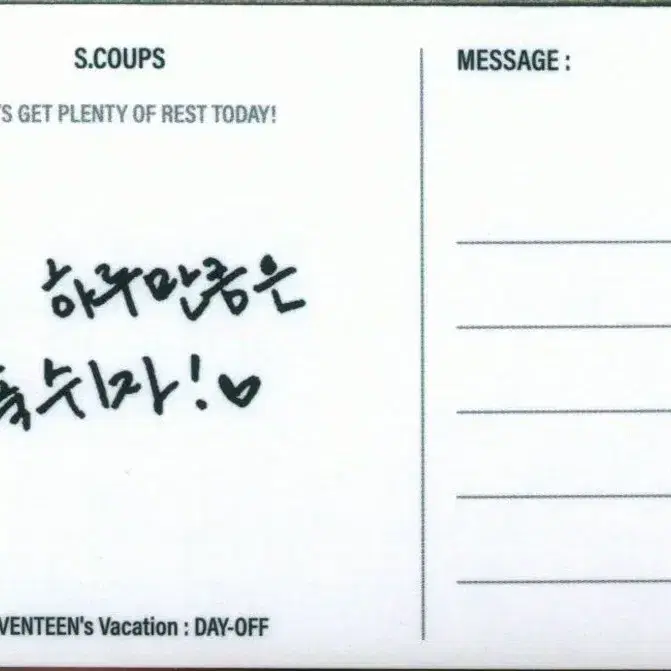 S.COUPS
'S GET PLENTY OF REST TODAY!
하루만큼은
푹 쉬자!♥
VENTEEN's Vacation : DAY-OFF
MESSAGE :